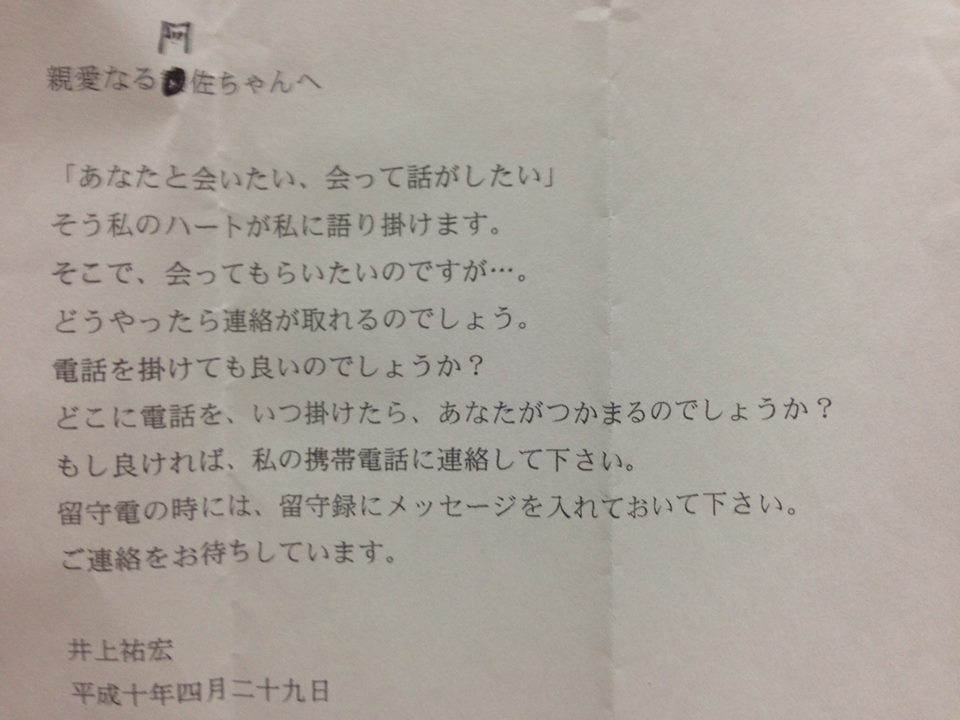 阿
親愛なる佐ちゃんへ
「あなたと会いたい、会って話がしたい」
そう私のハートが私に語り掛けます。
そこで、会ってもらいたいのですが…。
どうやったら連絡が取れるのでしょう。
電話を掛けても良いのでしょうか？
どこに電話を、いつ掛けたら、あなたがつかまるのでしょうか？
もし良ければ、私の携帯電話に連絡して下さい。
留守電の時には、留守録にメッセージを入れておいて下さい。
ご連絡をお待ちしています。
井上祐宏
平成十年四月二十九日